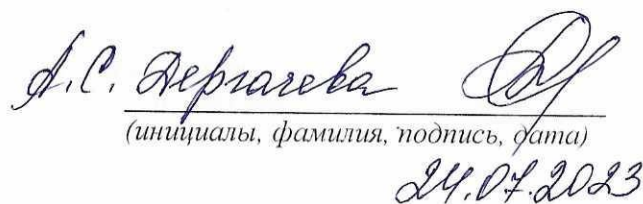 А.С. Дергачева
(инициалы, фамилия, подпись, дата)
24.07.2023